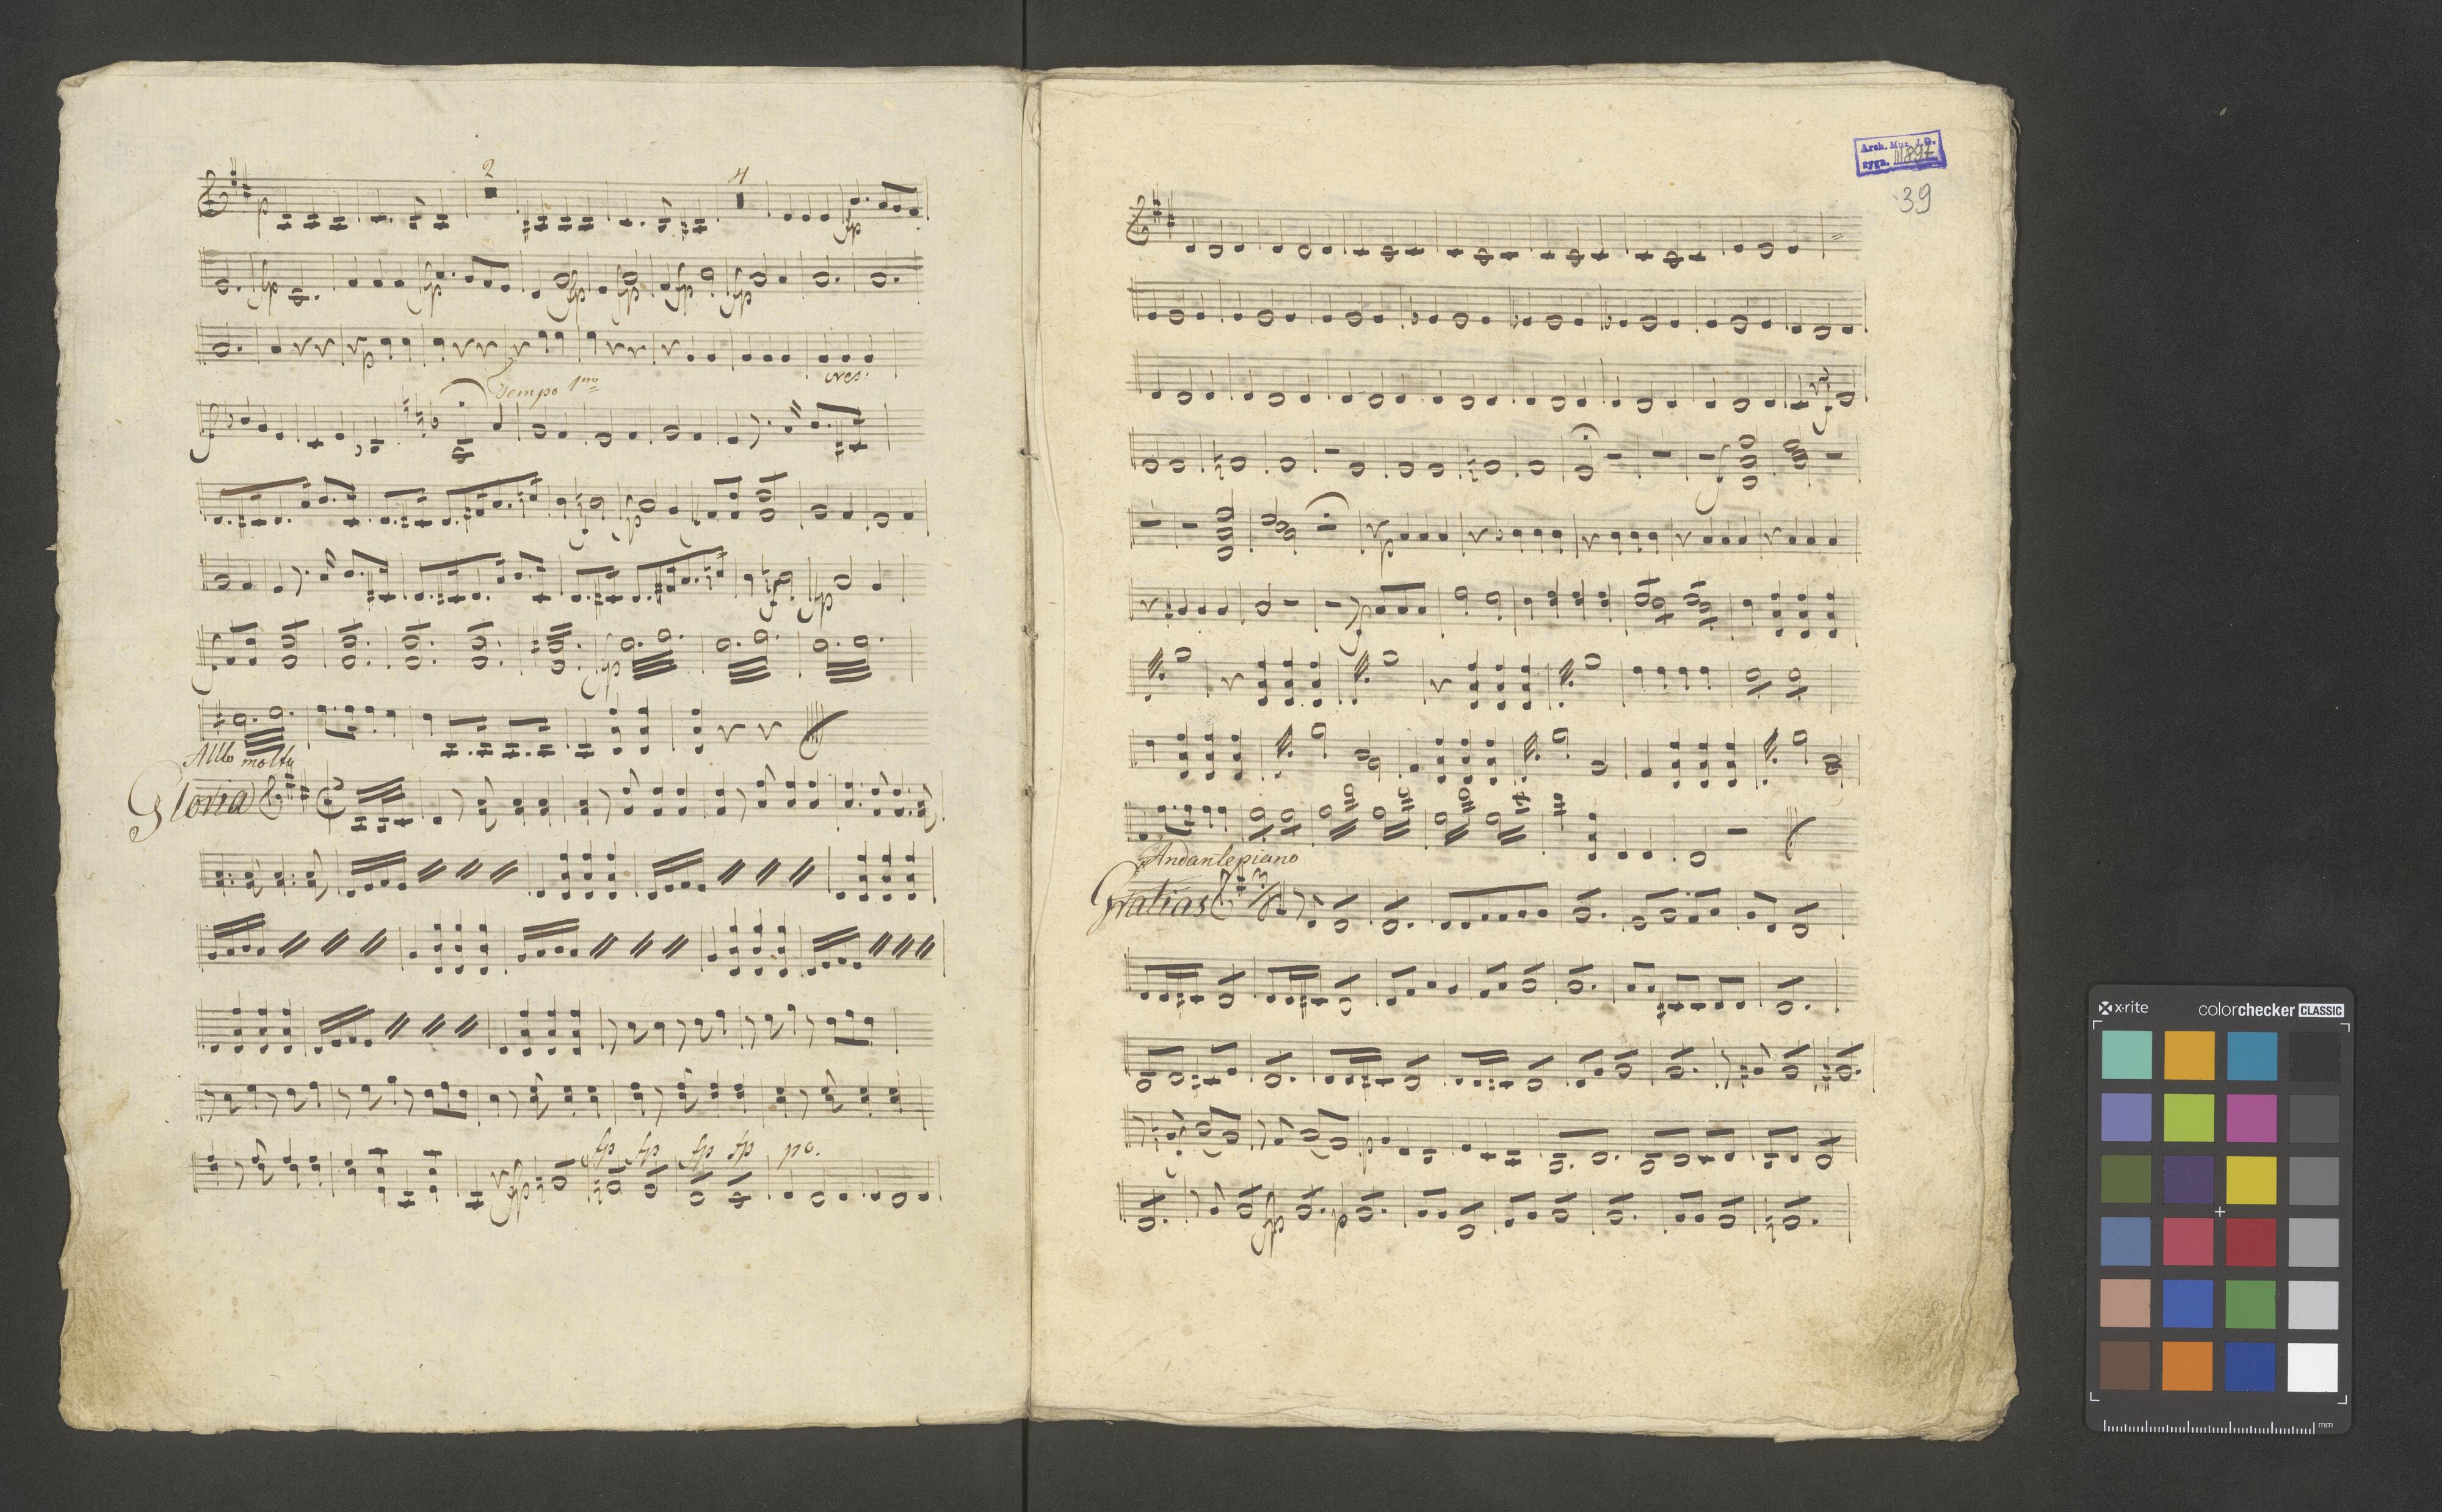 2
4
p
fp
fp fp fp fp fp fp
p
cres:
f Tempo 1mo
f p
f fp
f fp
Allo molto
Gloria
fp fp fp fp fp po.
Arch. Muz. J.G.
sygn. III 897
39
f
f
p
f
Andante piano
Gratias 3/8
p
fp p
x-rite colorchecker CLASSIC
mm